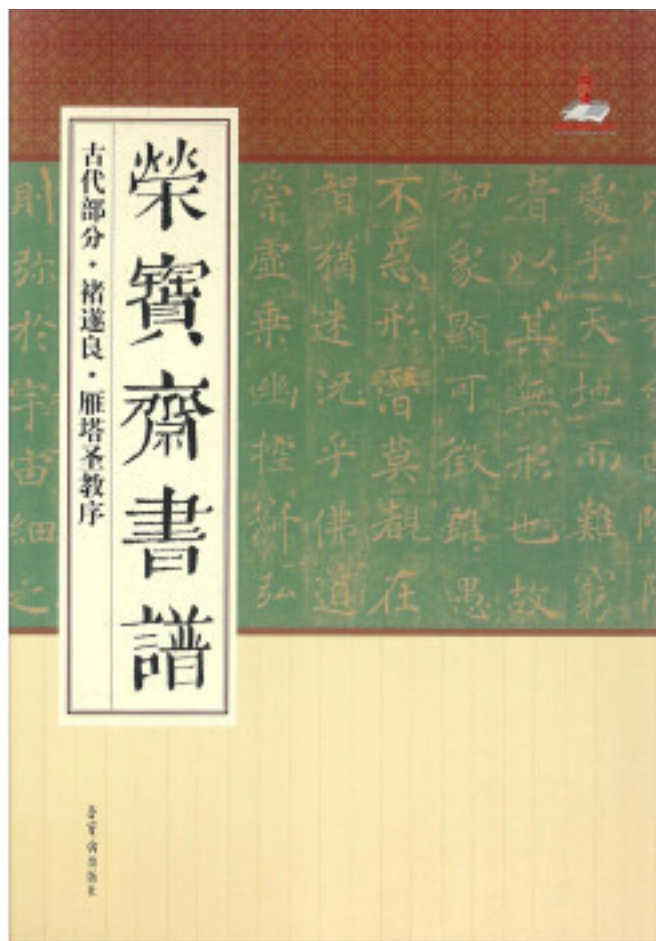 榮寶齋書譜
古代部分·褚遂良·雁塔圣教序
處乎天地而難窮
者以其無形也故
知象顯可徵雖愚
不惑形潛莫覩在
智猶迷況乎佛道
崇虛乗幽控寂弘
則弥於宇宙細之